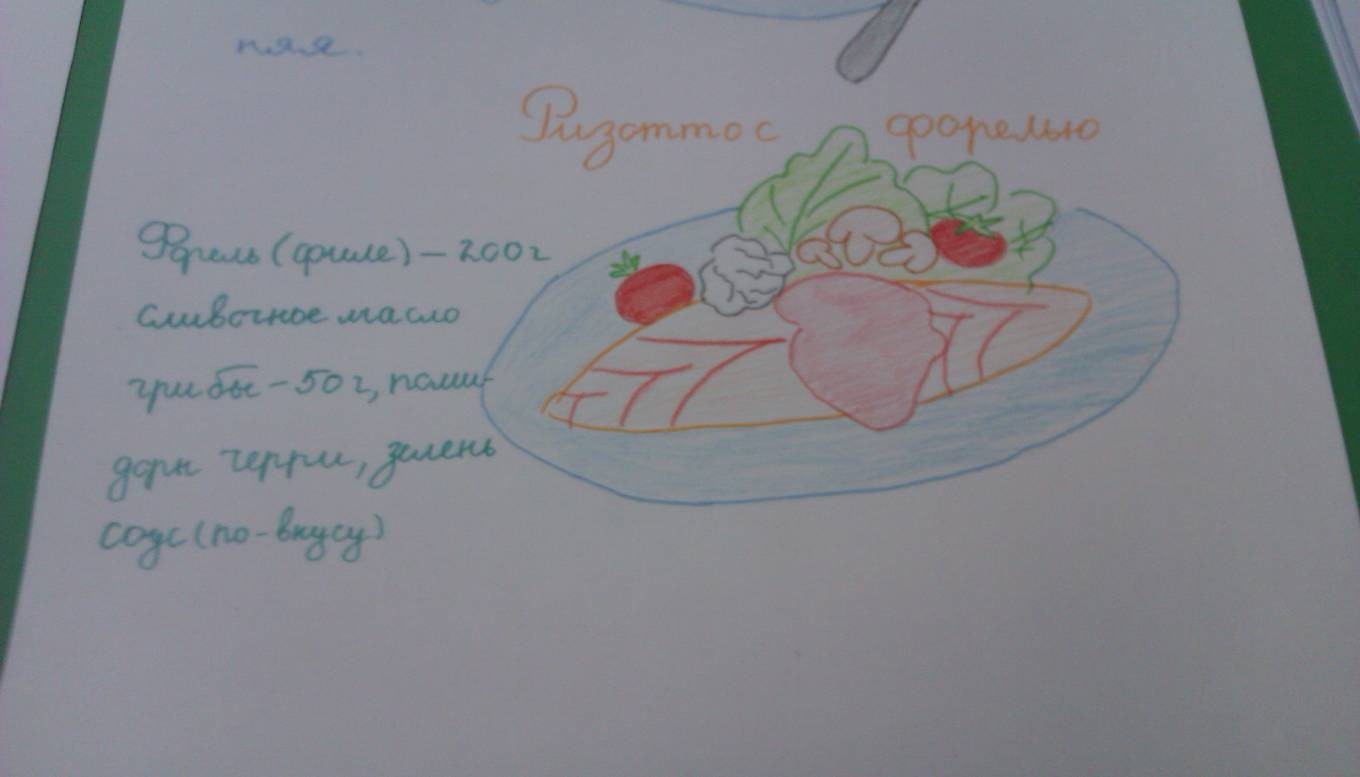 няя.
Ризотто с форелью
Форель (филе) – 200 г
сливочное масло
грибы – 50 г, поми-
доры черри, зелень
соус (по-вкусу)